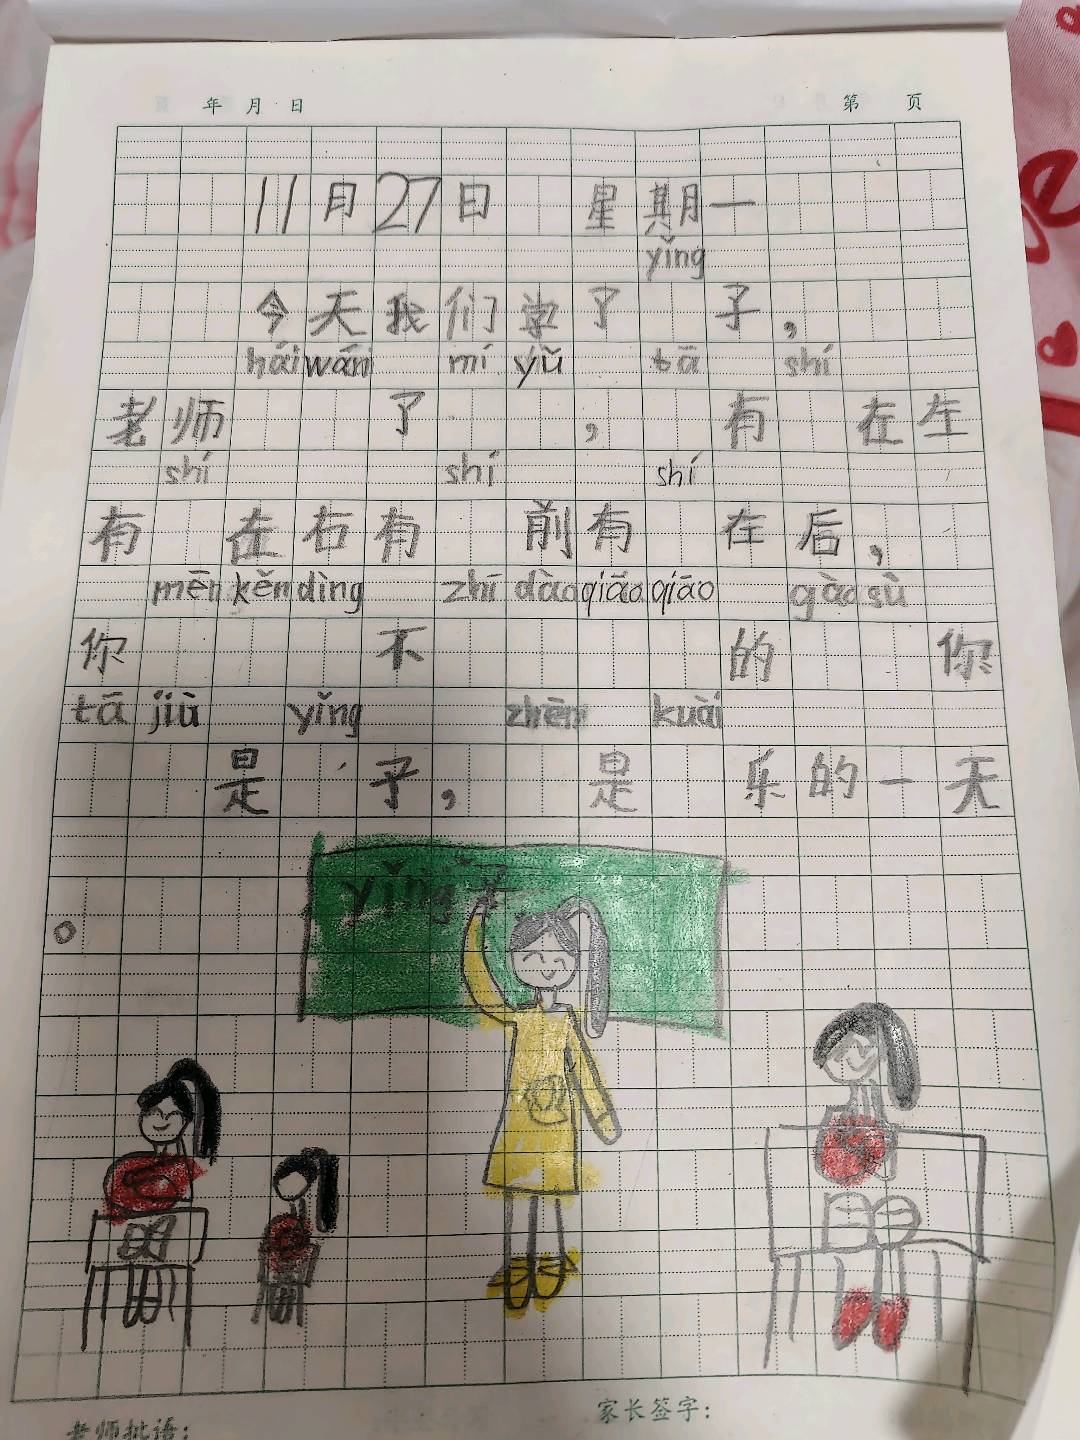 年 月 日 第 页
11月27日 星期一
yǐng
今天我们学了 子，
hái wán mí yǔ tā shí
老师 了 ，有 在左
shí shí shí
有 在右有 前有 在后，
mēn kěn dìng zhī dào qiāo qiāo gào sù
你 不 的 你
tā jiù yǐng zhēn kuài
是 子，是 乐的一天
。
yǐng 子
家长签字：
老师批语：